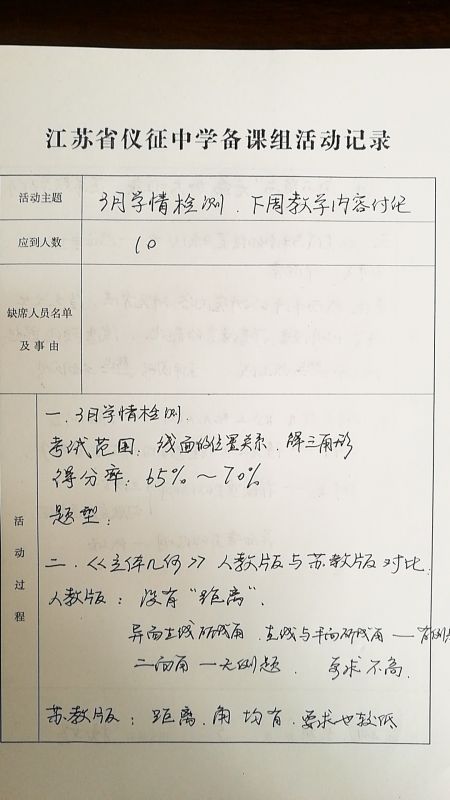 江苏省仪征中学备课组活动记录
活动主题 3月学情检测、下周教学内容讨论
应到人数 10
缺席人员名单
及事由
活动过程
一、3月学情检测.
考试范围:线面的位置关系、解三角形
得分率:65%~70%
题型:
二、《立体几何》人教版与苏教版对比.
人教版:没有“距离”.
异面直线所成角、直线与平面所成角——有例
二面角——无例题. 要求不高.
苏教版:距离、角均有,要求也较低